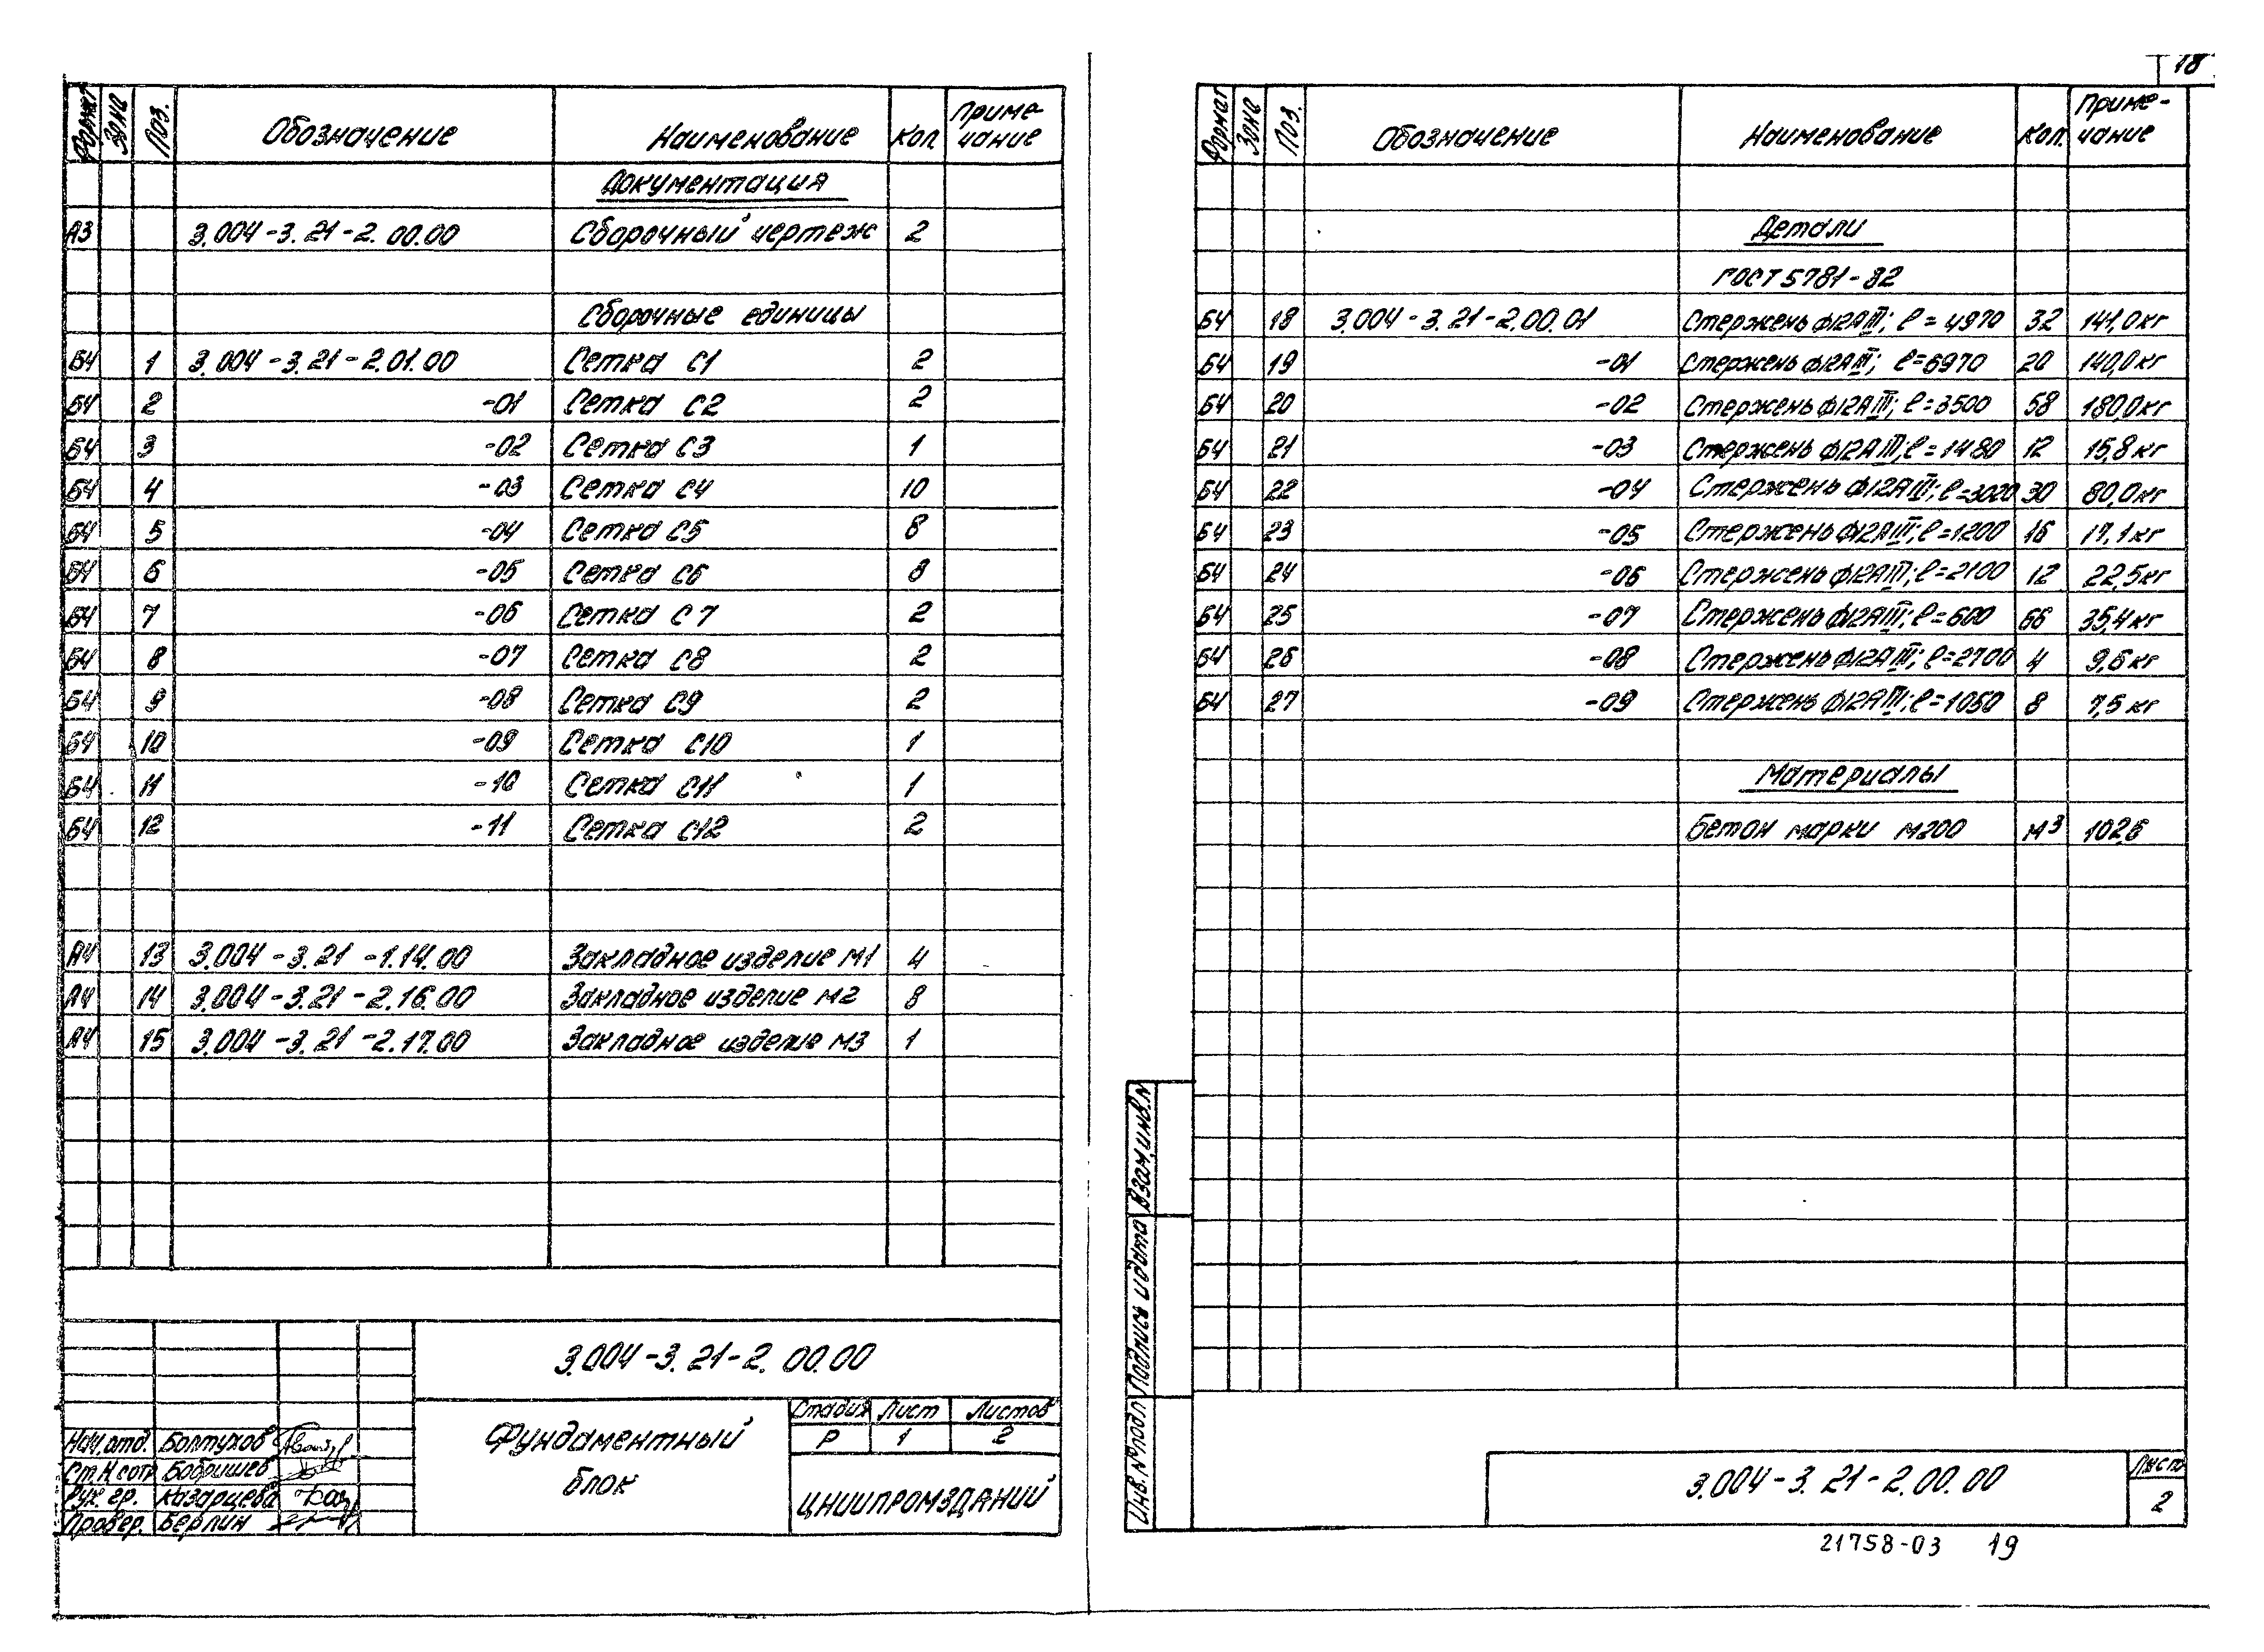 Формат Зона Поз. Обозначение Наименование Кол. Приме-
чание
Документация
А3 3.004-3.21-2.00.00 Сборочный чертеж 2
Сборочные единицы
БЧ 1 3.004-3.21-2.01.00 Сетка С1 2
БЧ 2 -01 Сетка С2 2
БЧ 3 -02 Сетка С3 1
БЧ 4 -03 Сетка С4 10
БЧ 5 -04 Сетка С5 8
БЧ 6 -05 Сетка С6 8
БЧ 7 -06 Сетка С7 2
БЧ 8 -07 Сетка С8 2
БЧ 9 -08 Сетка С9 2
БЧ 10 -09 Сетка С10 1
БЧ 11 -10 Сетка С11 1
БЧ 12 -11 Сетка С12 2
А4 13 3.004-3.21-1.14.00 Закладное изделие М1 4
А4 14 3.004-3.21-2.16.00 Закладное изделие М2 8
А4 15 3.004-3.21-2.17.00 Закладное изделие М3 1
3.004-3.21-2.00.00
Фундаментный
блок
Стадия Лист Листов
Р 1 2
ЦНИИПРОМЗДАНИЙ
Нач.отд. Болтухов
Ст.Н.сотр. Бобришев
Рук.гр. Казарцева
Провер. Берлин
18
Формат Зона Поз. Обозначение Наименование Кол. Приме-
чание
Детали
ГОСТ 5781-82
БЧ 18 3.004-3.21-2.00.01 Стержень ф12АIII; ℓ=4970 32 141,0кг
БЧ 19 -01 Стержень ф12АIII; ℓ=6970 20 140,0кг
БЧ 20 -02 Стержень ф12АIII; ℓ=3500 58 180,0кг
БЧ 21 -03 Стержень ф12АIII; ℓ=1480 12 15,8кг
БЧ 22 -04 Стержень ф12АIII; ℓ=3000 30 80,0кг
БЧ 23 -05 Стержень ф12АIII; ℓ=1200 16 17,1кг
БЧ 24 -06 Стержень ф12АIII; ℓ=2100 12 22,5кг
БЧ 25 -07 Стержень ф12АIII; ℓ=600 66 35,4кг
БЧ 26 -08 Стержень ф12АIII; ℓ=2700 4 9,6кг
БЧ 27 -09 Стержень ф12АIII; ℓ=1050 8 7,5кг
Материалы
Бетон марки М200 м³ 102,6
Взам.инв.N
Подпись и дата
Инв.№подл
3.004-3.21-2.00.00
Лист
2
21758-03 19